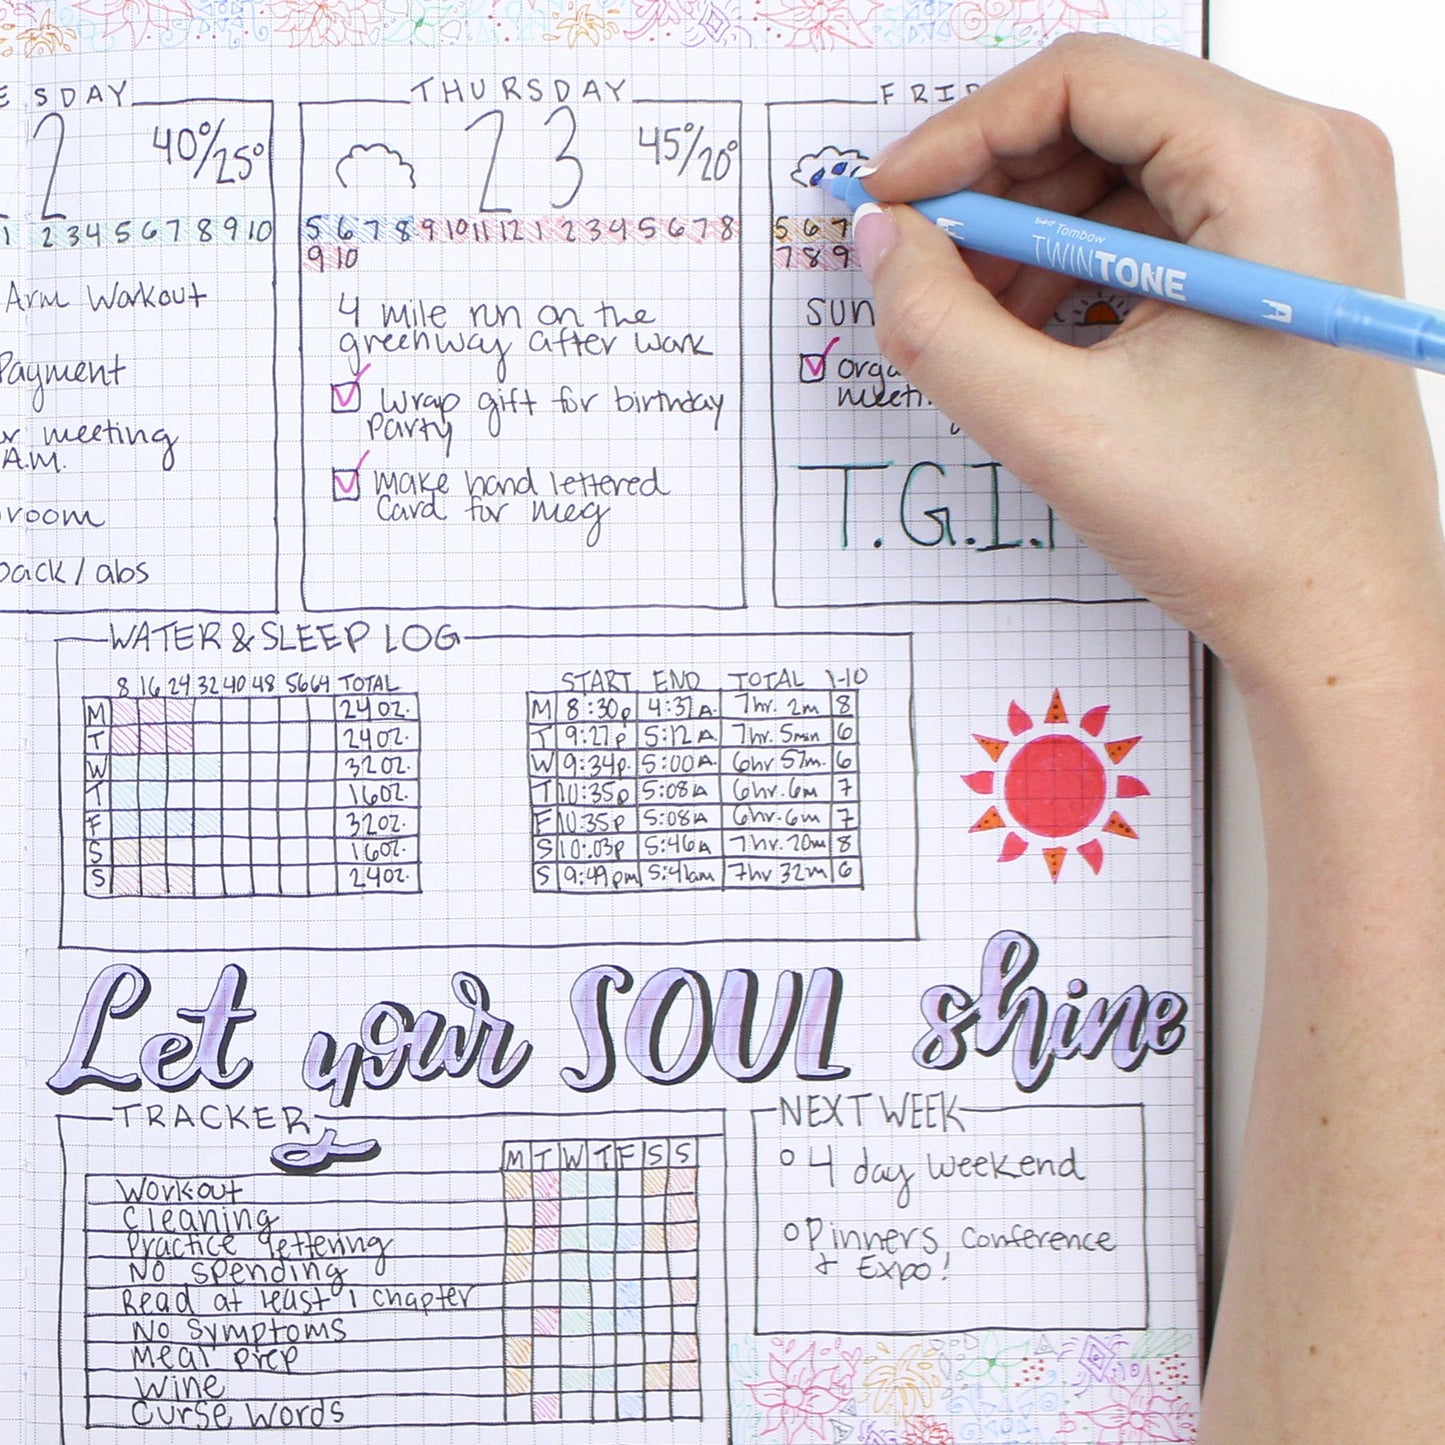 ESDAY
2
40°/25°
1 2 3 4 5 6 7 8 9 10
Arm Workout
Payment
meeting
A.M.
room
back/abs
THURSDAY
23
45°/20°
5 6 7 8 9 10 11 12 1 2 3 4 5 6 7 8
9 10
4 mile run on the
greenway after work
wrap gift for birthday
party
Make hand lettered
Card for meg
FRID
5 6 7
7 8 9
SUN
orga
meeti
T.G.I.
Tombow
TWINTONE
WATER & SLEEP LOG
8 16 24 32 40 48 56 64 TOTAL
M 24 oz.
T 24 oz.
W 32 oz.
T 16 oz.
F 32 oz.
S 16 oz.
S 24 oz.
START END TOTAL 1-10
M 8:30p 4:37A. 7hr. 2m 8
T 9:27p 5:12A 7hr. 5min 6
W 9:34p. 5:00A 6hr 57m. 6
T 10:35p 5:08A 6hr. 6m 7
F 10:35p 5:08A 6hr. 6m 7
S 10:03p 5:46A 7hr. 20m 8
S 9:49pm 5:41am 7hr 32m 6
Let your SOUL shine
TRACKER
M T W T F S S
Workout
Cleaning
Practice lettering
No spending
Read at least 1 chapter
No symptoms
Meal prep
Wine
Curse words
NEXT WEEK
4 day weekend
Pinners Conference
+ Expo!